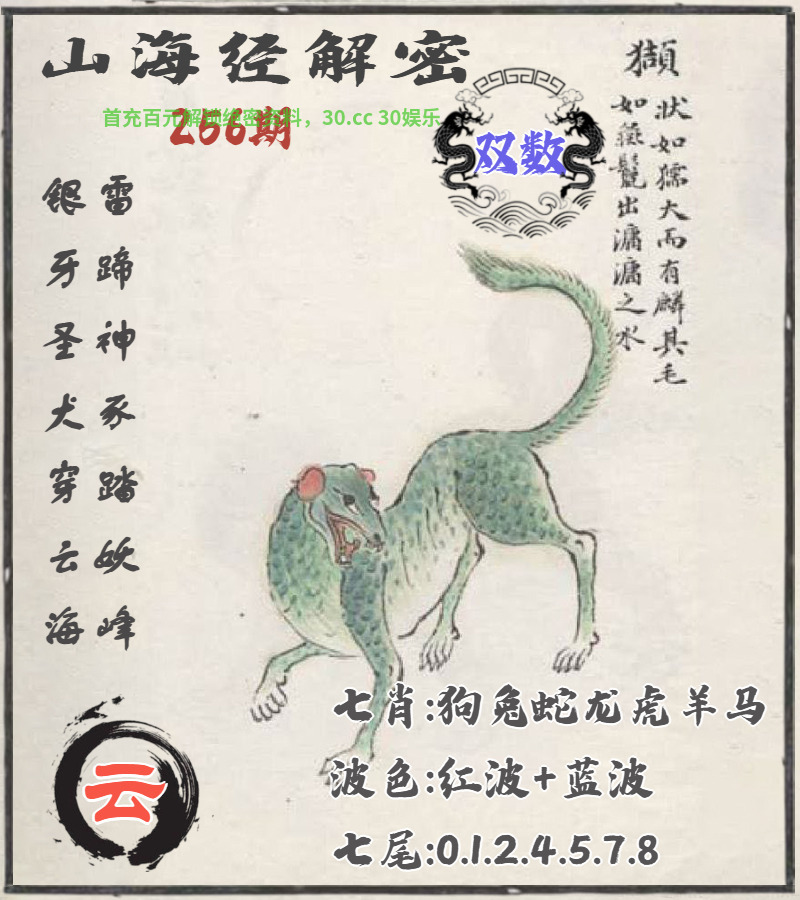 山海经解密
首充百元解锁绝密资料，30.cc 30娱乐
266期
双数
獺
状如獳犬而有鳞其毛
如彘鬣出滽滽之水
雷蹄神豕踏妖峰
银牙圣犬穿云海
云
七肖:狗兔蛇龙虎羊马
波色:红波+蓝波
七尾:0.1.2.4.5.7.8